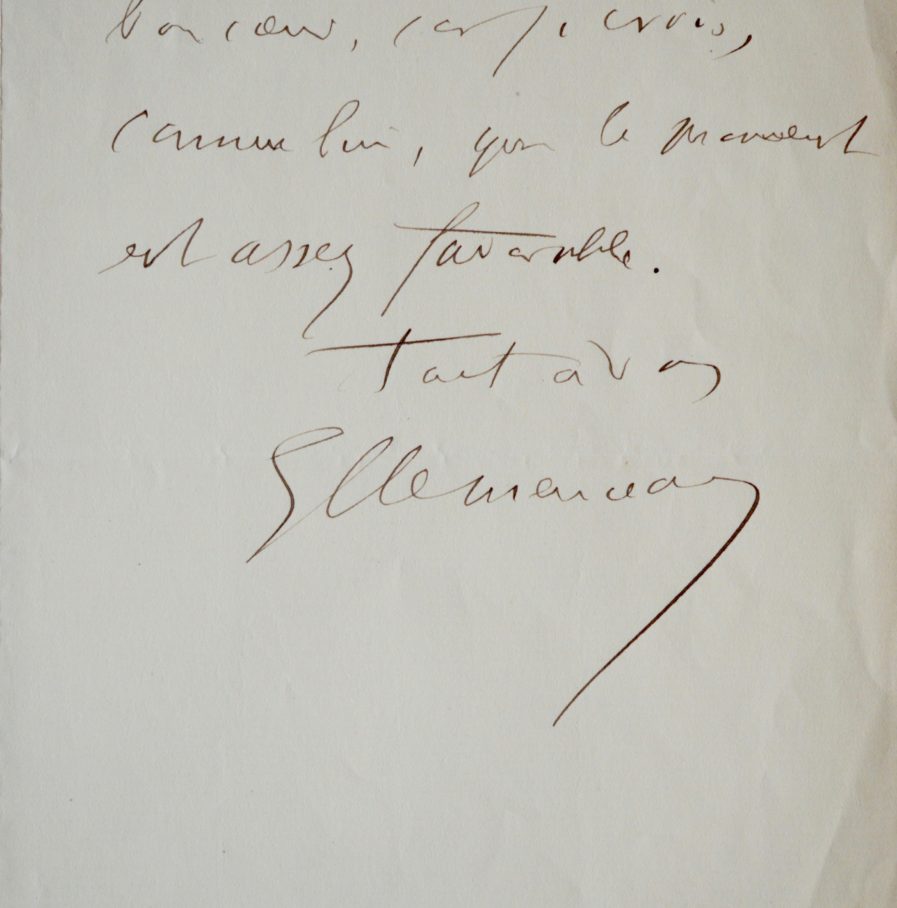 bon cœur, car je crois,
comme lui, que le moment
est assez favorable.
tout à vous
GClemenceau